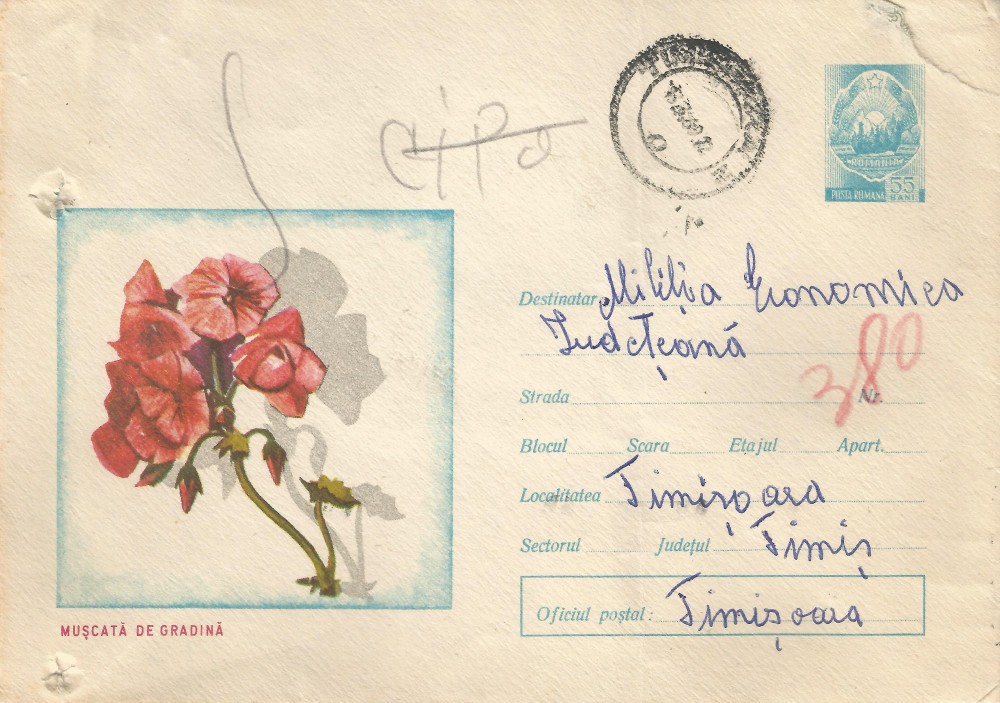 ROMANIA
POSTA ROMANA 55 BANI
Destinatar Miliția Economica
Județeană
380
Strada Nr.
Blocul Scara Etajul Apart.
Localitatea Timișoara
Sectorul Județul Timiș
Oficiul poștal: Timișoara
MUȘCATĂ DE GRADINĂ